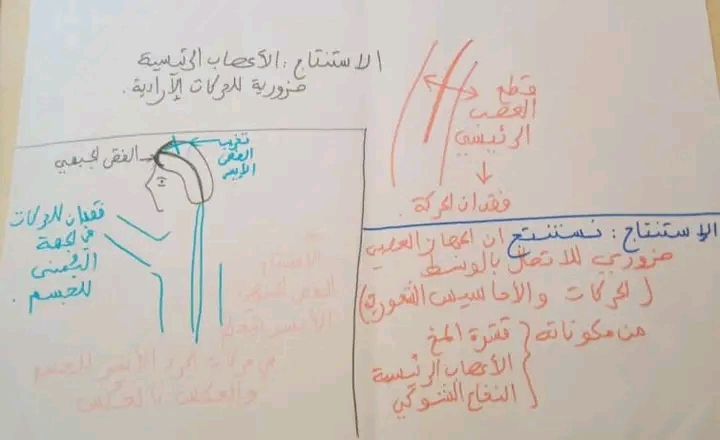 الاستنتاج: الأعصاب الرئيسية
ضرورية للحركات الإرادية.
قطع
العصب
الرئيسي
فقدان الحركة.
الفص الجبهي
تخريب
الفص
الأيسر
فقدان للحركات
في الجهة
اليمنى
للجسم.
الأيسر
في حركات الجزء الأيمن للجسم
والعكس بالعكس
الإستنتاج: نستنتج أن الجهاز العصبي
ضروري للاتصال بالوسط
(الحركات والأحاسيس الشعورية)
من مكوناته
قشرة المخ
الأعصاب الرئيسية
النخاع الشوكي